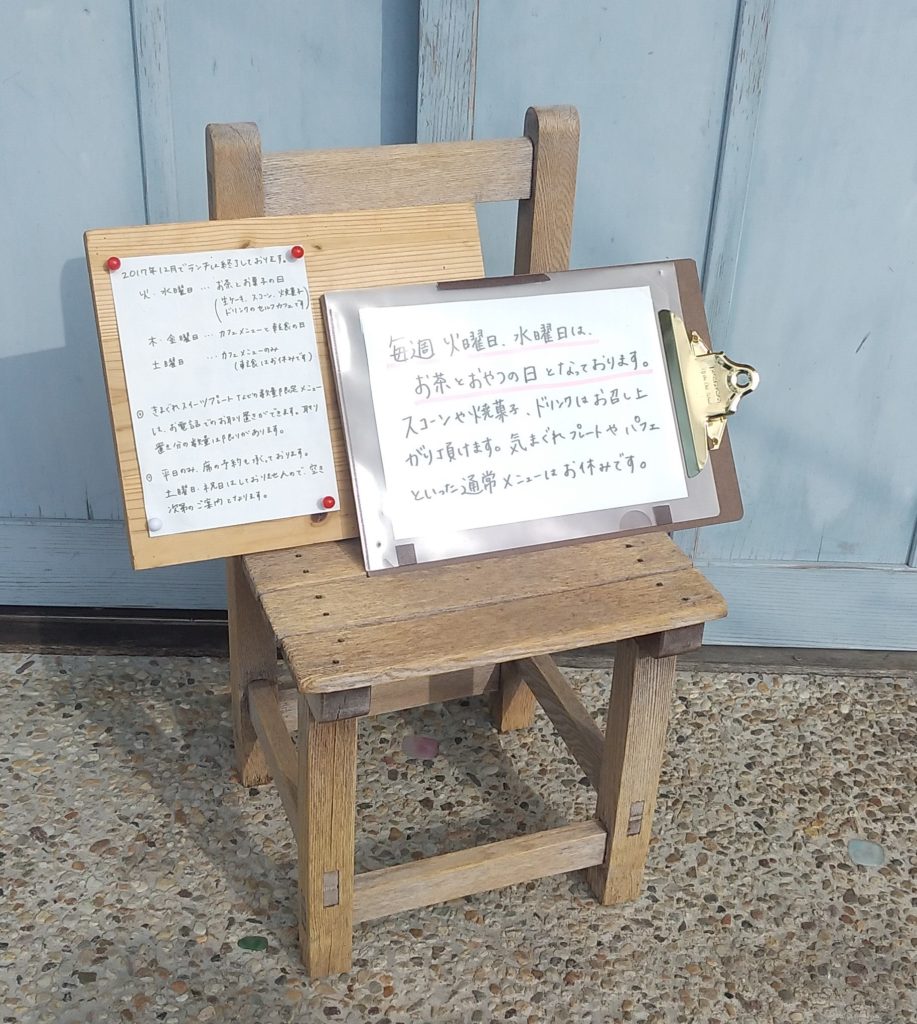 2017年12月でランチは終了しております。
火、水曜日…お茶とお菓子の日
(生ケーキ、スコーン、焼菓子
ドリンクのセルフカフェです)
木・金曜日…カフェメニューと軽食の日
土曜日…カフェメニューのみ
(軽食はお休みです)
きまぐれスイーツプレートなどの数量限定メニュー
は、お電話でのお取り置きができます。取り
置き分の数量は限りがあります。
平日のみ、席の予約も承っております。
土曜日、祝日はしておりませんので、空き
次第のご案内となります。
毎週 火曜日、水曜日は、
お茶とおやつの日となっております。
スコーンや焼菓子、ドリンクはお召し上
がり頂けます。気まぐれプレートやパフェ
といった通常メニューはお休みです。